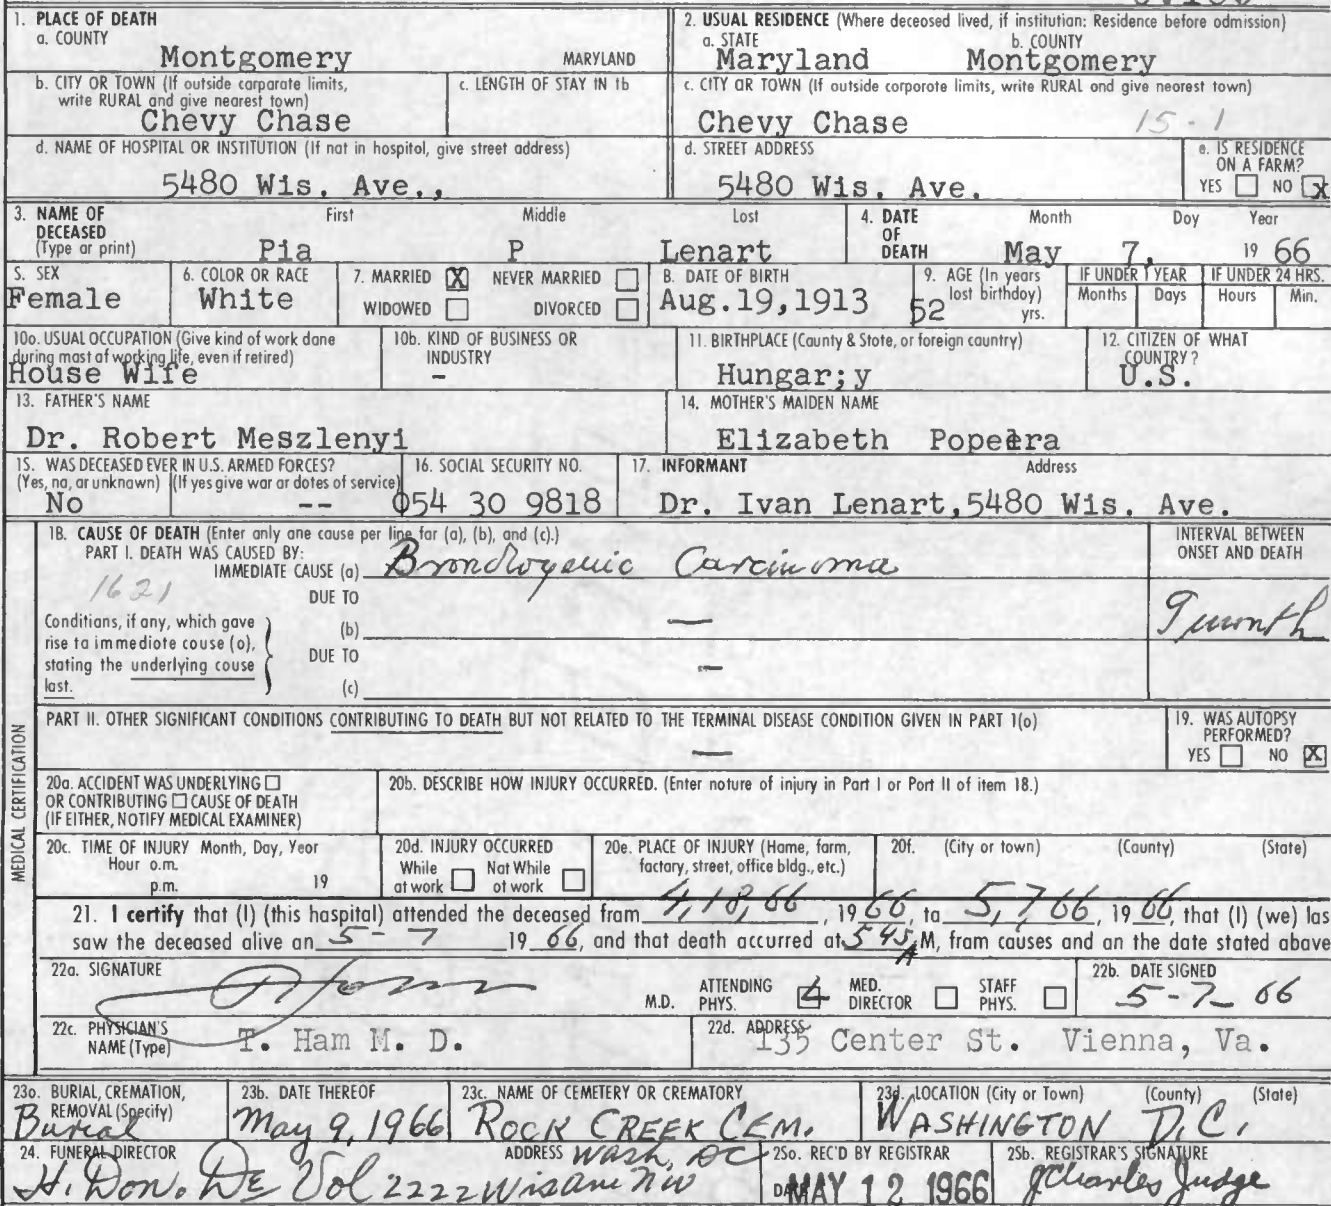 1. PLACE OF DEATH
a. COUNTY
Montgomery MARYLAND
2. USUAL RESIDENCE (Where deceased lived, if institution: Residence before admission)
a. STATE b. COUNTY
Maryland Montgomery
b. CITY OR TOWN (If outside corporate limits,
write RURAL and give nearest town)
Chevy Chase
c. LENGTH OF STAY IN 1b
c. CITY OR TOWN (If outside corporate limits, write RURAL and give nearest town)
Chevy Chase 15-1
d. NAME OF HOSPITAL OR INSTITUTION (If not in hospital, give street address)
5480 Wis. Ave.,
d. STREET ADDRESS
5480 Wis. Ave.
e. IS RESIDENCE
ON A FARM?
YES NO X
3. NAME OF
DECEASED
(Type or print)
First Middle Last
Pia P Lenart
4. DATE
OF
DEATH
Month Day Year
May 7, 19 66
5. SEX
Female
6. COLOR OR RACE
White
7. MARRIED X NEVER MARRIED
WIDOWED DIVORCED
8. DATE OF BIRTH
Aug.19,1913
9. AGE (In years
last birthday)
52 yrs.
IF UNDER 1 YEAR
Months Days
IF UNDER 24 HRS.
Hours Min.
10a. USUAL OCCUPATION (Give kind of work done
during most of working life, even if retired)
House Wife
10b. KIND OF BUSINESS OR
INDUSTRY
-
11. BIRTHPLACE (County & State, or foreign country)
Hungar;y
12. CITIZEN OF WHAT
COUNTRY?
U.S.
13. FATHER'S NAME
Dr. Robert Meszlenyi
14. MOTHER'S MAIDEN NAME
Elizabeth
15. WAS DECEASED EVER IN U.S. ARMED FORCES?
(Yes, no, or unknown) (If yes give war or dates of service)
No --
16. SOCIAL SECURITY NO.
054 30 9818
17. INFORMANT Address
Dr. Ivan Lenart,5480 Wis. Ave.
18. CAUSE OF DEATH (Enter only one cause per line for (a), (b), and (c).)
PART I. DEATH WAS CAUSED BY:
IMMEDIATE CAUSE (a) Bronchogenic Carcinoma
1621
DUE TO
Conditions, if any, which gave
rise to immediate cause (a),
stating the underlying cause
last.
(b) —
DUE TO
—
(c)
INTERVAL BETWEEN
ONSET AND DEATH
9 month
PART II. OTHER SIGNIFICANT CONDITIONS CONTRIBUTING TO DEATH BUT NOT RELATED TO THE TERMINAL DISEASE CONDITION GIVEN IN PART 1(a)
—
19. WAS AUTOPSY
PERFORMED?
YES NO X
MEDICAL CERTIFICATION
20a. ACCIDENT WAS UNDERLYING
OR CONTRIBUTING CAUSE OF DEATH
(IF EITHER, NOTIFY MEDICAL EXAMINER)
20b. DESCRIBE HOW INJURY OCCURRED. (Enter nature of injury in Part I or Part II of item 18.)
20c. TIME OF INJURY Month, Day, Year
Hour a.m.
p.m. 19
20d. INJURY OCCURRED
While Not While
at work at work
20e. PLACE OF INJURY (Home, farm,
factory, street, office bldg., etc.)
20f. (City or town) (County) (State)
21. I certify that (I) (this hospital) attended the deceased from 4,18,66, 19 66, to 5,7,66, 19 66, that (I) (we) las
saw the deceased alive on 5-7 19 66, and that death occurred at 5 45 A M, from causes and on the date stated above
22a. SIGNATURE
M.D.
ATTENDING
PHYS.
MED.
DIRECTOR
STAFF
PHYS.
22b. DATE SIGNED
5-7-66
22c. PHYSICIAN'S
NAME (Type)
T. Ham M. D.
22d. ADDRESS
135 Center St. Vienna, Va.
23a. BURIAL, CREMATION,
REMOVAL (Specify)
Burial
23b. DATE THEREOF
May 9, 1966
23c. NAME OF CEMETERY OR CREMATORY
ROCK CREEK CEM.
23d. LOCATION (City or Town) (County) (State)
WASHINGTON D.C.
24. FUNERAL DIRECTOR ADDRESS Wash, DC
H. Don. De Vol 2222 Wis Ave NW
25a. REC'D BY REGISTRAR
DATE MAY 12 1966
25b. REGISTRAR'S SIGNATURE
J Charles Judge